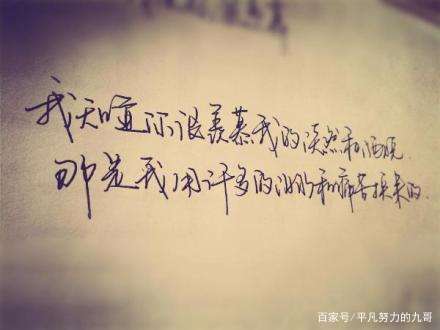 我知道你很羡慕我的淡然和洒脱.
那是我用许多的泪水和痛苦换来的.
百家号/平凡努力的九哥